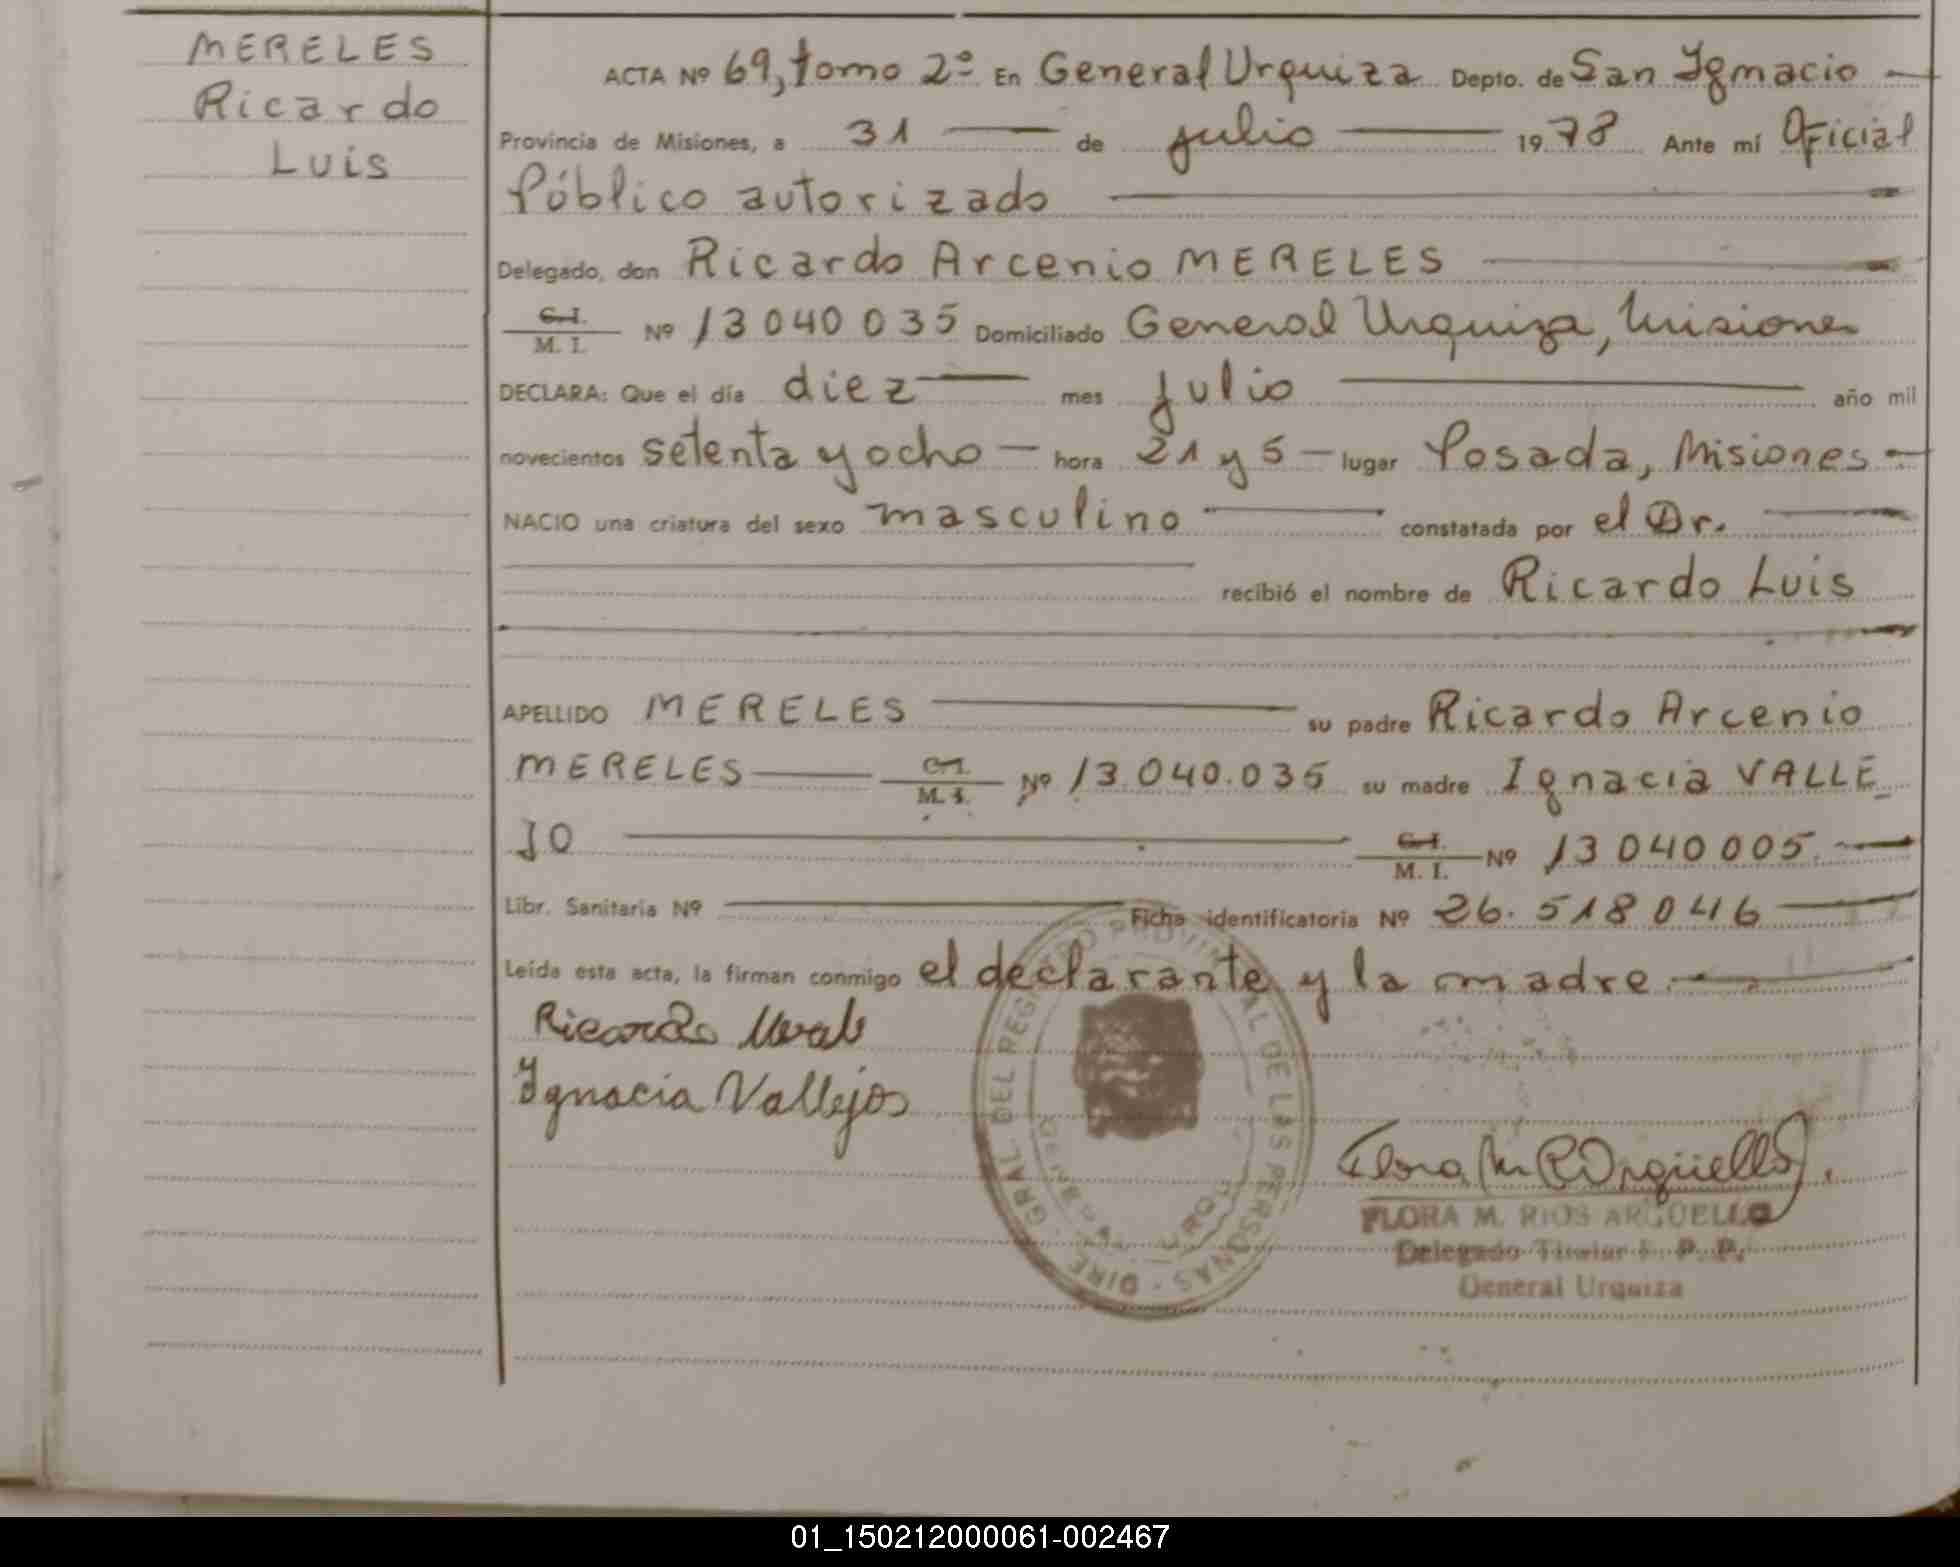 MERELES
Ricardo
Luis
ACTA Nº 69, tomo 2º En General Urquiza Depto. de San Ignacio
Provincia de Misiones, a 31 de julio 1978 Ante mí Oficial
Público autorizado
Delegado, don Ricardo Arcenio MERELES
C.I. M. I. Nº 13 040 035 Domiciliado General Urquiza, Misiones
DECLARA: Que el día diez mes julio año mil
novecientos setenta y ocho hora 21 y 5 lugar Posada, Misiones
NACIO una criatura del sexo masculino constatada por el Dr.
recibió el nombre de Ricardo Luis
APELLIDO MERELES su padre Ricardo Arcenio
MERELES C.I. M. I. Nº 13.040.035 su madre Ignacia VALLE_
JO C.I. M. I. Nº 13 040 005
Libr. Sanitaria Nº Ficha identificatoria Nº 26.518 046
Leída esta acta, la firman conmigo el declarante y la madre
Ricardo
Ignacia Vallejos
DIRE. GRAL. DEL REGISTRO PROVINCIAL DE LAS PERSONAS
Flora M R Argüello
FLORA M. RIOS ARGUELLO
Delegado Titular R. P. P.
General Urquiza
01_150212000061-002467